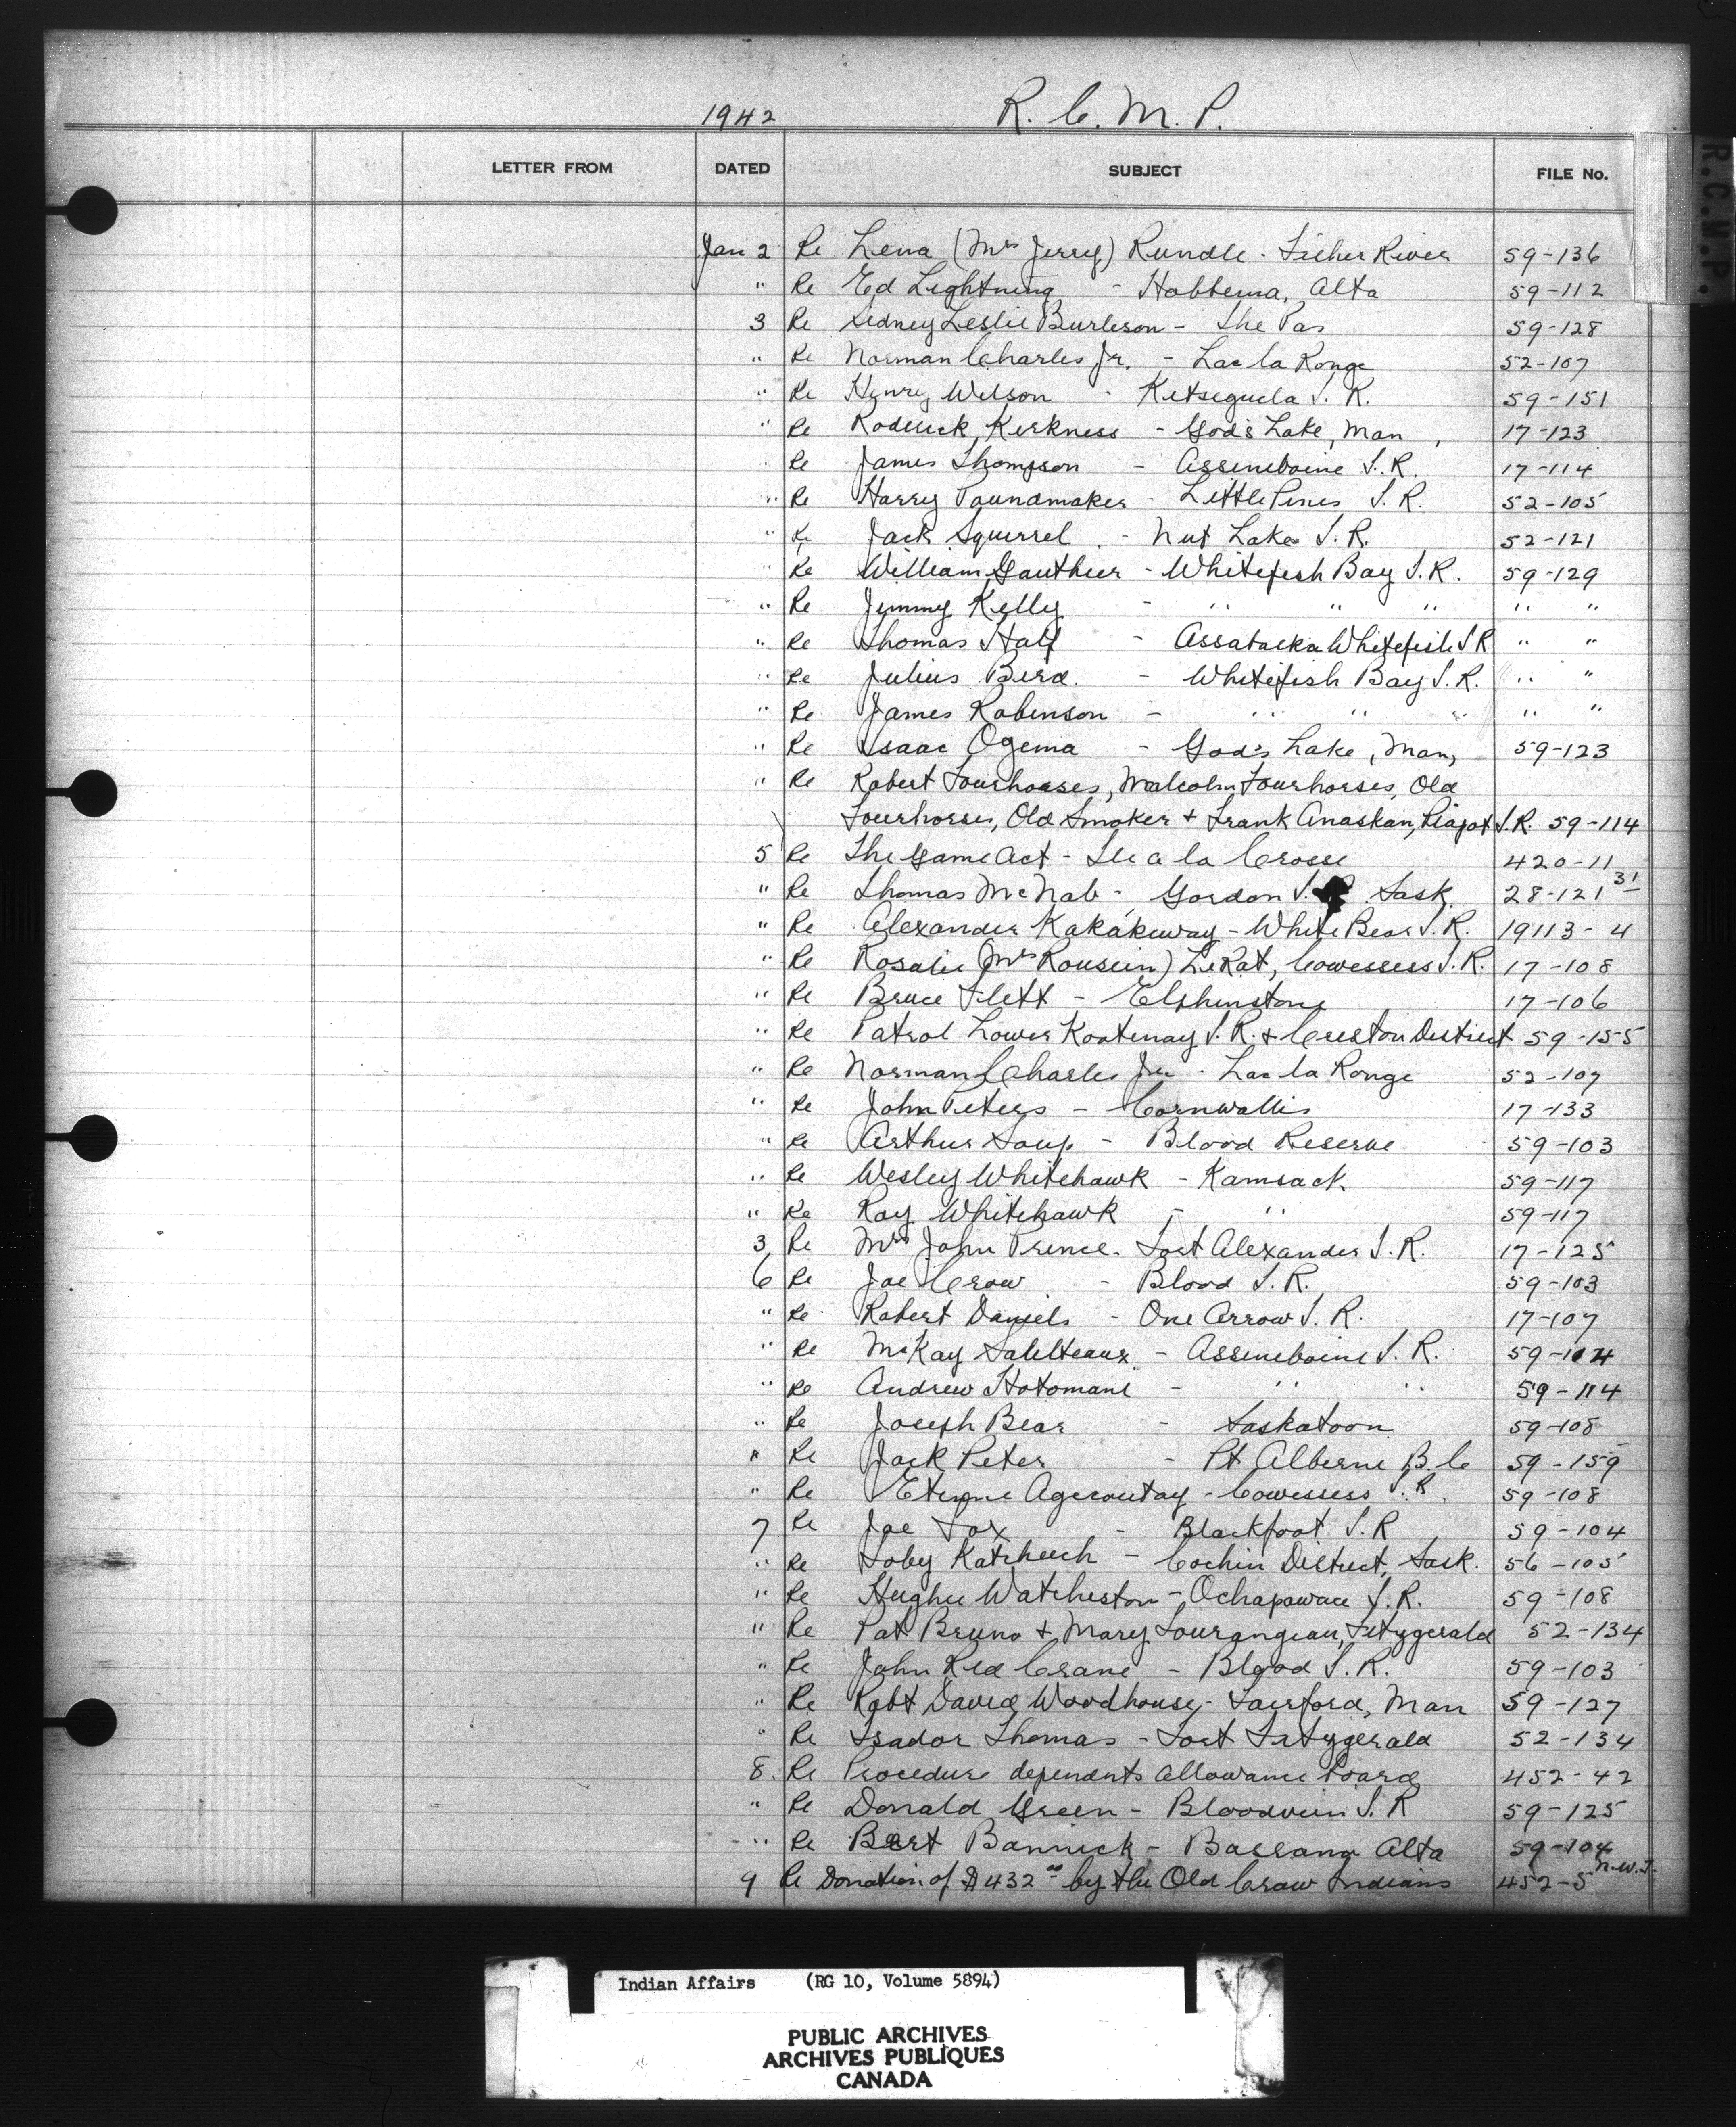 1942 R. C. M. P.
R.C.M.P.
LETTER FROM DATED SUBJECT FILE No.
Jan 2 Re Lena (Mrs Jerry) Rundle - Fisher River 59-136
" Re Ed Lightning - Hobbema, Alta 59-112
3 Re Sidney Leslie Burleson - The Pas 59-128
" Re Norman Charles Jr. - Lac la Ronge 52-107
" Re Henry Wilson - Kitseguela I. R. 59-151
" Re Roderick Kirkness - God's Lake, Man, 17-123
" Re James Thompson - Assiniboine I. R. 17-114
" Re Harry Poundmaker - Little Pines I. R. 52-105
" Re Jack Squirrel - Nut Lake I. R. 52-121
" Re William Gauthier - Whitefish Bay I. R. 59-129
" Re Jimmy Kelly - " " " " "
" Re Thomas Half - Whitefish I R " "
" Re Julius Bird. - Whitefish Bay I. R. " "
" Re James Robinson - " " " " "
" Re Isaac Ogema - God's Lake, Man, 59-123
" Re Robert Fourhorses, Malcolm Fourhorses, Old
Fourhorses, Old Smoker + Frank Anaskan, Piapot I.R. 59-114
5 Re The Game Act - Ile a la Crosse 420-11
" Re Thomas McNab - Gordon I. R. Sask. 28-121 31
" Re Alexander Kakakeway - White Bear I. R. 19113-4
" Re Rosalie (Mrs ) LeRat, Cowessess I. R. 17-108
" Re Bruce Flett - Elphinstone 17-106
" Re Patrol Lower Kootenay I. R. + Creston District 59-155
" Re Norman Charles Jnr - Lac la Ronge 52-107
" Re John Peters - Cornwallis 17-133
" Re Arthur Soup - Blood Reserve 59-103
" Re Wesley Whitehawk - Kamsack 59-117
" Re Ray Whitehawk - " 59-117
3 Re Mrs John Prince - Fort Alexander I. R. 17-125
6 Re Joe Crow - Blood I. R. 59-103
" Re Robert Daniels - One Arrow I. R. 17-107
" Re McKay Saulteaux - Assiniboine I. R. 59-114
" Re Andrew Hotomani - " " 59-114
" Re Joseph Bear - Saskatoon 59-108
" Re Jack Peter - Pt Alberni B. C 59-159
" Re Etienne Agecoutay - Cowessess I. R. 59-108
7 Re Joe Fox - Blackfoot I. R 59-104
" Re Toby - Cochin District, Sask. 56-105
" Re Hughie Watcheston - Ochapowace I. R. 59-108
" Re Pat Bruno + Mary Tourangeau, Fitzgerald 52-134
" Re John Red Crane - Blood I. R. 59-103
" Re Robt David Woodhouse - Fairford, Man 59-127
" Re Isador Thomas - Fort Fitzgerald 52-134
8. Re Procedure dependents allowance board 452-42
" Re Donald Green - Bloodvein I. R 59-125
" Re Bert Bannick - Bassano Alta 59-104
9 Re Donation of $432.00 by the Old Crow Indians 452-5 N.W.T.
Indian Affairs (RG 10, Volume 5894)
PUBLIC ARCHIVES
ARCHIVES PUBLIQUES
CANADA